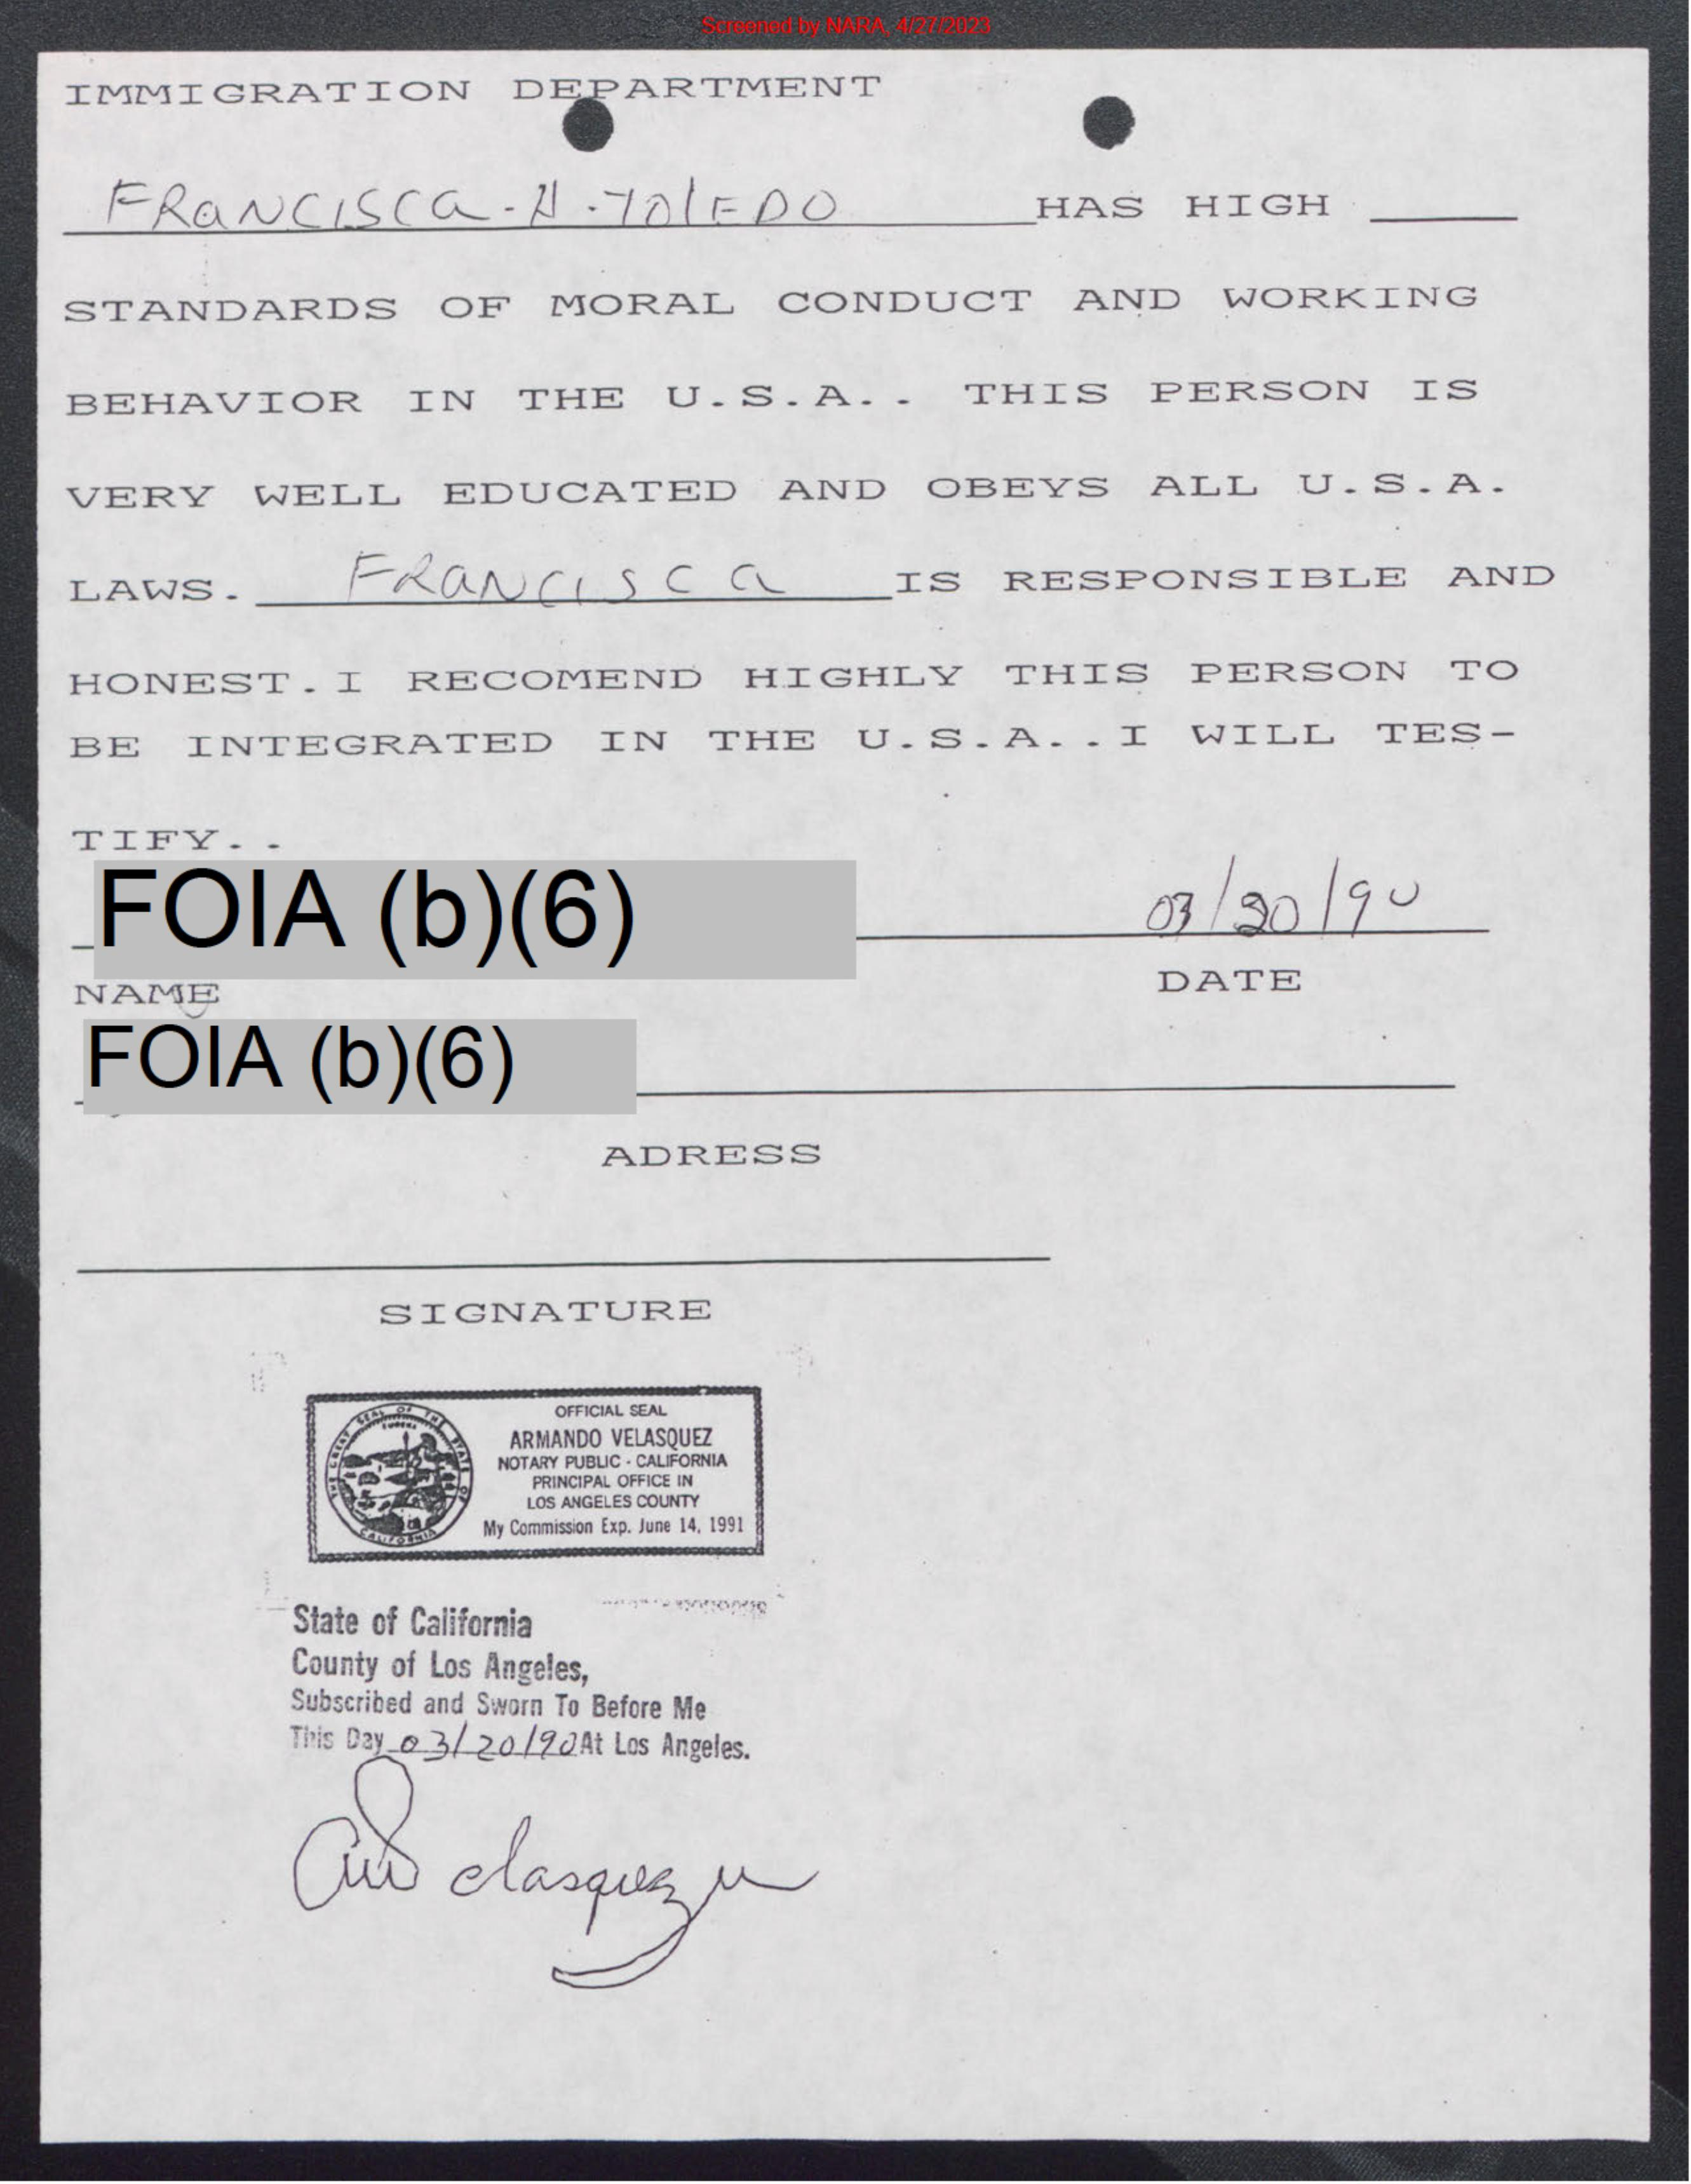 Screened by NARA, 4/27/2023
IMMIGRATION DEPARTMENT
FRANCISCA - H - TOLEDO HAS HIGH
STANDARDS OF MORAL CONDUCT AND WORKING
BEHAVIOR IN THE U.S.A.. THIS PERSON IS
VERY WELL EDUCATED AND OBEYS ALL U.S.A.
LAWS. FRANCISCA IS RESPONSIBLE AND
HONEST. I RECOMEND HIGHLY THIS PERSON TO
BE INTEGRATED IN THE U.S.A..I WILL TES-
TIFY..
FOIA (b)(6) 03/20/90
NAME DATE
FOIA (b)(6)
ADRESS
SIGNATURE
THE GREAT SEAL OF THE STATE OF CALIFORNIA
EUREKA
OFFICIAL SEAL
ARMANDO VELASQUEZ
NOTARY PUBLIC - CALIFORNIA
PRINCIPAL OFFICE IN
LOS ANGELES COUNTY
My Commission Exp. June 14, 1991
State of California
County of Los Angeles,
Subscribed and Sworn To Before Me
This Day 03/20/90 At Los Angeles.